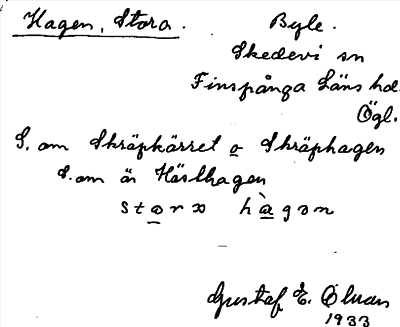 Hagen, Stora. Byle.
Skedevi sn
Finspånga Läns hd.
Ögl.
S. om Skräpkärret o Skräphagen
S. om är Hästhagen
hagen
Gustaf E. Öman
1933